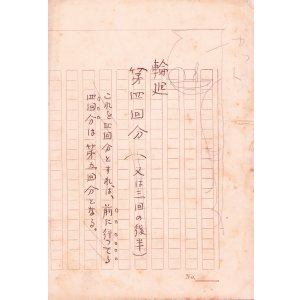 輪廻
第四回分（又は三回の後半）
これを四回分とすれば、前に行つてる
四回分は第五回分となる。
No.